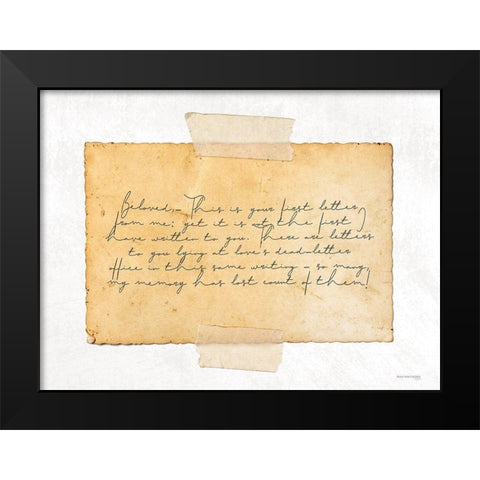 Beloved,- This is your first letter
from me: yet it is not the first I
have written to you. There are letters
to you lying at love's dead-letter
office in this same writing - so many,
my memory has lost count of them!